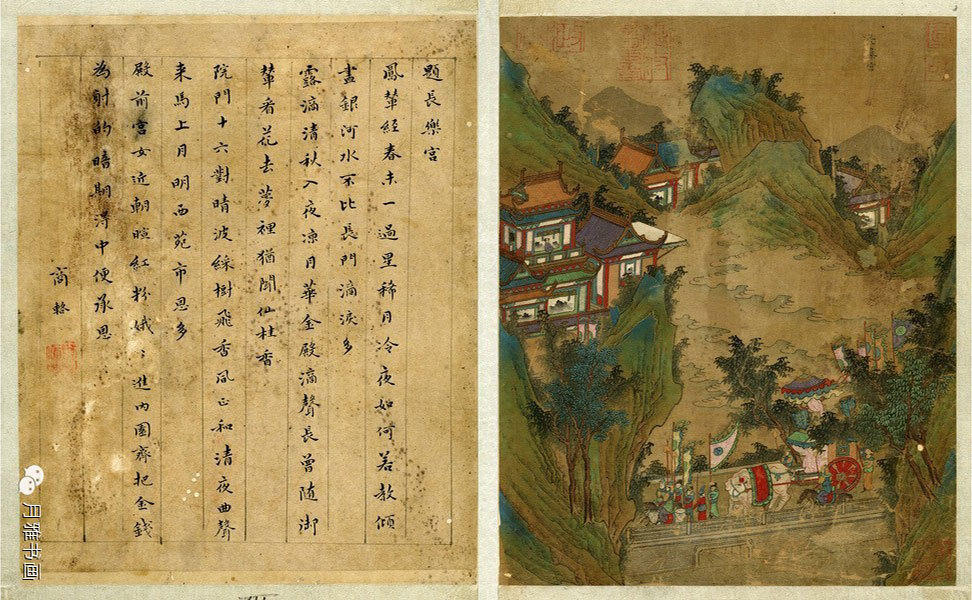 題長樂宮
鳳輦經春未一過星稀月冷夜如何若教傾
盡銀河水不比長門滴淚多
露滴清秋入夜凉月華金殿滴聲長曾随御
輦看花去夢裡猶聞仙桂香
院門十六對晴波綵樹飛香風正和清夜曲聲
来馬上月明西苑市恩多
殿前宮女近朝暄紅粉娥〻進內園齊把金錢
為射的暗期得中便承恩
商輅
月雅书画